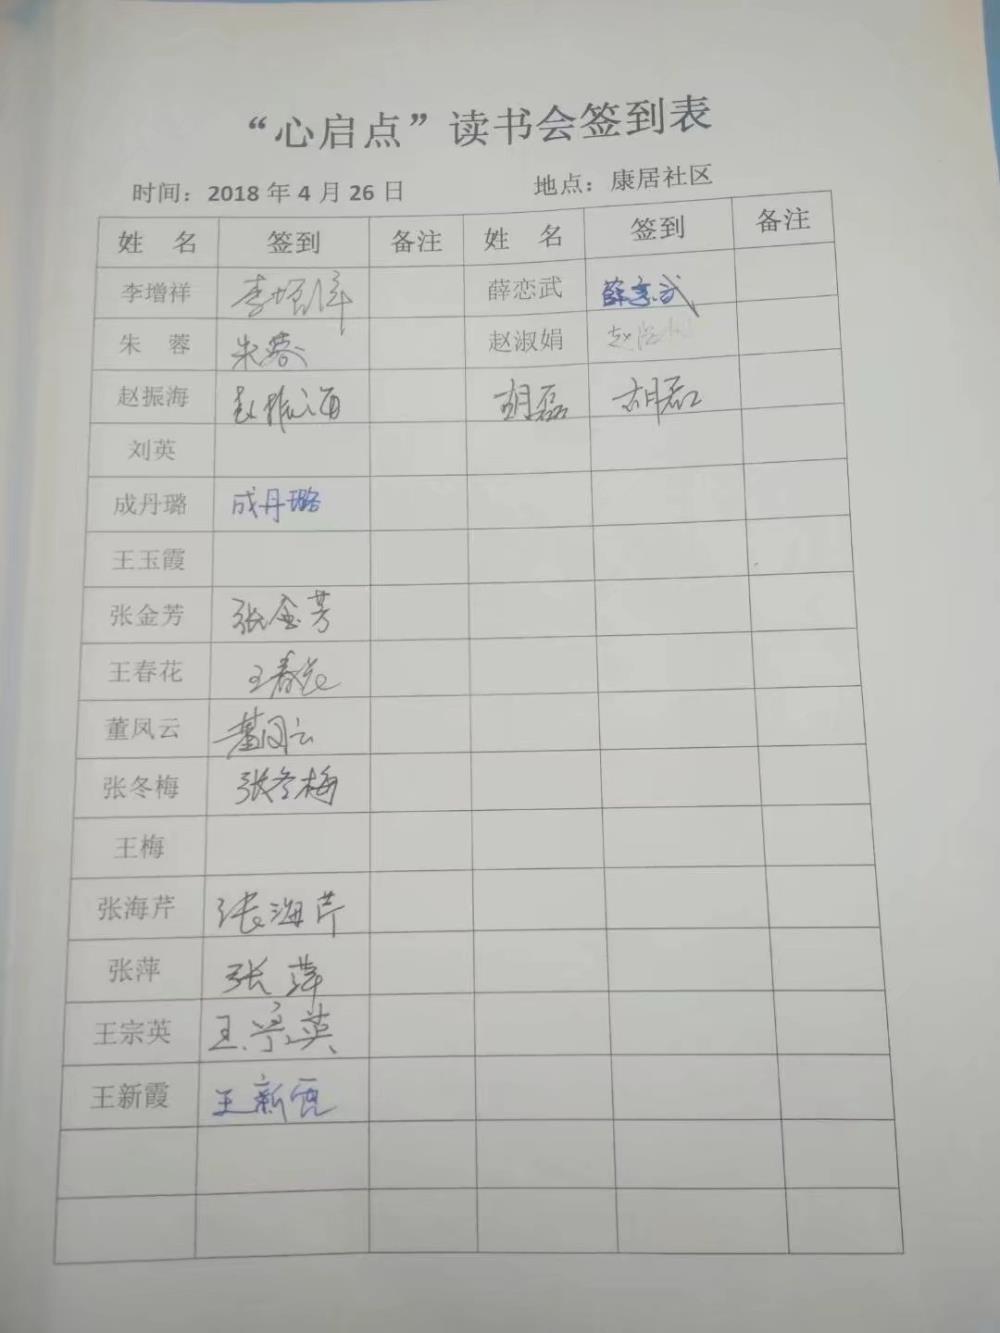 “心启点”读书会签到表
时间：2018 年 4 月 26 日 地点：康居社区
姓 名 签到 备注 姓 名 签到 备注
李增祥 李增祥 薛恋武 薛恋武
朱 蓉 朱蓉 赵淑娟 赵淑娟
赵振海 赵振海 胡磊 胡磊
刘英
成丹璐 成丹璐
王玉霞
张金芳 张金芳
王春花 王春花
董凤云 董凤云
张冬梅 张冬梅
王梅
张海芹 张海芹
张萍 张萍
王宗英 王宗英
王新霞 王新霞